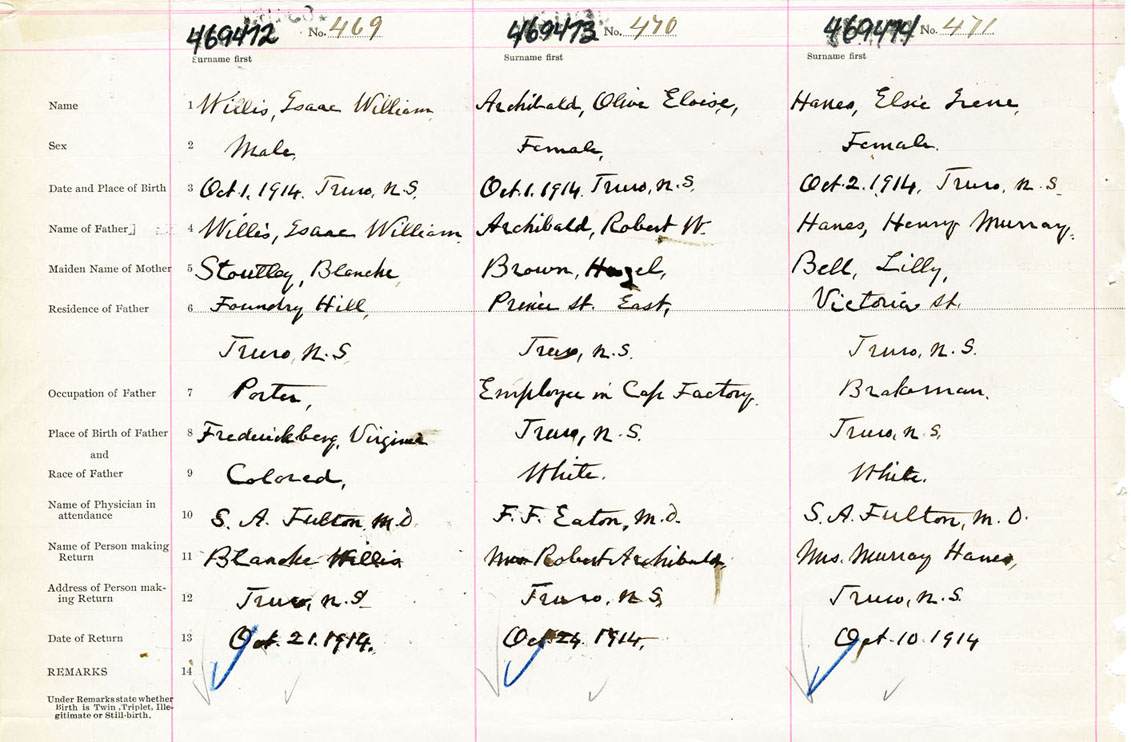 469472 No. 469 469473 No. 470 469474 No. 471
Surname first Surname first Surname first
Name 1 Willis, Isaac William Archibald, Olive Eloise, Hanes, Elsie Irene,
Sex 2 Male, Female, Female.
Date and Place of Birth 3 Oct. 1. 1914. Truro, N.S. Oct. 1. 1914. Truro, N.S. Oct. 2. 1914, Truro, N.S.
Name of Father 4 Willis, Isaac William Archibald, Robert W. Hanes, Henry Murray,
Maiden Name of Mother 5 Stoutley, Blanche, Brown, Hazel, Bell, Lilly,
Residence of Father 6 Foundry Hill, Prince St. East, Victoria St.
Truro, N.S. Truro, N.S. Truro, N.S.
Occupation of Father 7 Porter, Employee in Cap Factory. Brakeman.
Place of Birth of Father 8 Frederickberg, Virginia Truro, N.S. Truro, N.S,
and
Race of Father 9 Colored, White. White.
Name of Physician in
attendance 10 S. A. Fulton, M.D. F. F. Eaton, M.D. S. A. Fulton, M.D.
Name of Person making
Return 11 Blanche Willis Robert Archibald, Mrs. Murray Hanes,
Address of Person mak-
ing Return 12 Truro, N.S. Truro, N.S. Truro, N.S.
Date of Return 13 Oct. 21. 1914. Oct 24. 1914. Oct. 10. 1914
REMARKS 14
Under Remarks state whether
Birth is Twin, Triplet, Ille-
gitimate or Still-birth.